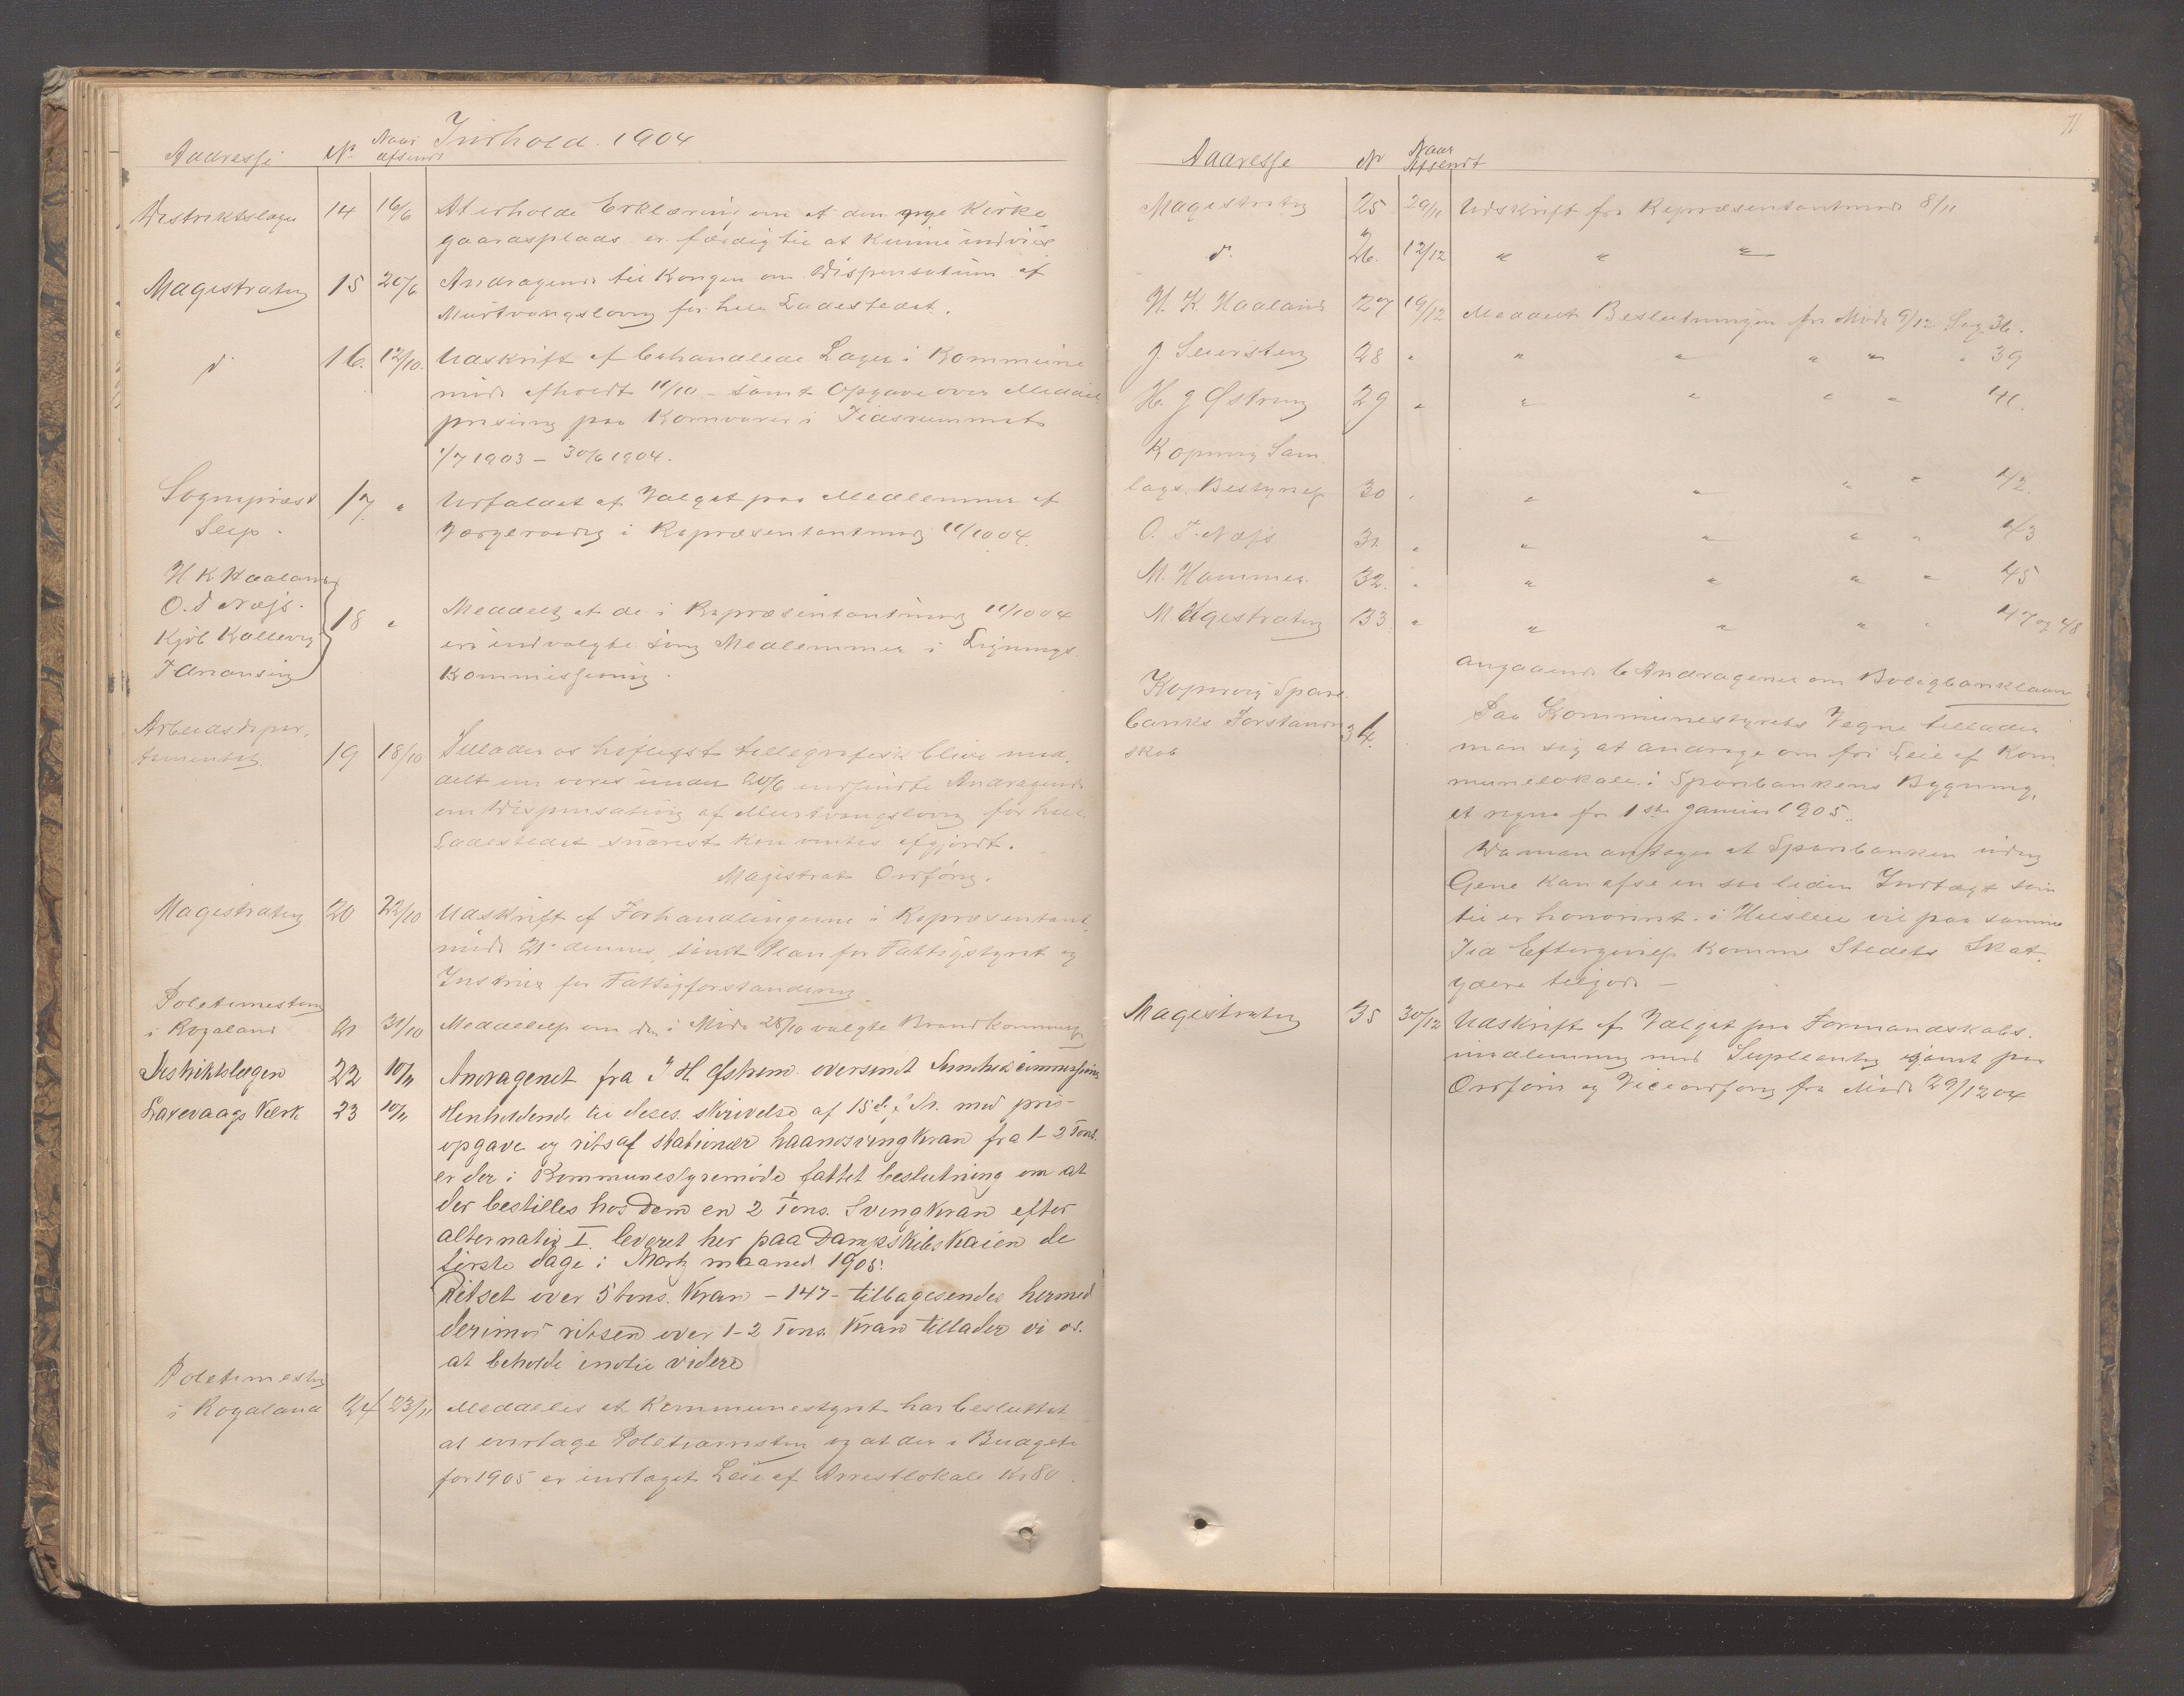 Addresse No Naar afsendt Indhold 1904
Distriktslæge 14 16/6 At erholde Erklæring om at den nye Kirke
gaardsplads er færdig til at kunne indvies
Magistraten 15 20/6 Andragende til Kongen om Dispensation af
Murtvangsloven for hele Ladestedet.
do 16. 12/10. Udskrift af behandlede Sager i Kommune
møde afholdt 11/10 - samt Opgave over Middel
prisen paa Kornvarer i Tidsrummet
1/7 1903 - 30/6 1904.
Sognepræst 17 " Udfaldet af Valget paa Medlemmer af
Seip. Værgeraadet i Repræsentantmøde 11/10 04.
H. K. Haaland
O. T. Næss.
Kjøl Kallevig 18 " Meddeles at de i Repræsentantmøde 11/10 04
er indvalgte som Medlemmer i Lignings
Kommissionen.
Arbeidsdepar,
tementet 19 18/10 Tillader os høfligst tellegrafisk blive med,
delt om vores under 20/6 indsendte Andragende
om Dispensation af Murtvangsloven for hele
Ladestedet snarest kan ventes afgjordt.
Magistrat Ordfører.
Magistraten 20 22/10 Udskrift af Forhandlingerne i Repræsentant,
møde 21 dennes, samt Plan for Fattigstyret og
Instrux for Fattigforstanderen
Politimesteren
i Rogaland 21 31/10 Meddelelse om de i Møde 28/10 valgte Brandkommiss
Distriktslægen 22 10/11 Andragendet fra J H Østrem oversendt Sundhedskommissionen
Laxevaags Værk 23 10/11 Henholdende til deres skrivelse af 15de f. M. med pris-
opgave og rids af stationær haandsvingkran fra 1-2 Tons.
er der i Kommunestyremøde fattet beslutning om at
der bestilles hos Dem en 2 Tons. Svingkran efter
alternativ I. leveret her paa Dampskibskaien de
første dage i Marts maaned 1905.
Ridset over 5 tons. Kran - 147 - tilbagesendes hermed
derimod ridsen over 1-2 Tons. Kran tillader vi os.
at beholde indtil videre
Politimesteren
i Rogaland 24 23/11 Meddeles at Kommunestyret har besluttet
at og at der i Budget
for 1905 er indtaget Leie af Arrestlokale Kr 80.
71
Addresse No Naar Afsendt
Magistraten 25 29/11 Udskrift fra Repræsentantmøde 8/11
do. 26. 12/12 " " "
H. K. Haaland 27 19/12 Meddelt Beslutningen fra Møde 9/12 Sag 36.
J. Seiersten 28 " " " " " " 39
H. J Østrem 29 " " " " " 41.
Kopervig Sam
lags Bestyrelse 30 " " " " " 42.
O. T. Næss 31 " " " " " 43
M. Hammer 32. " " " " " 45
Magistraten 33 " " " " " 47 og 48
angaaende 6 Andragener om Boligbanklaan
Kopervig Spare
banks Forstander 34. Paa Kommunestyrets Vegne tillader
skab man sig at andrage om fri Leie af Kom,
munelokale i Sparebankens Bygning,
at regne fra 1ste Januar 1905.
Da man antager at Sparebanken uden
Gene kan afse en saa liden Indtægt som
til er honoreret i Husleie vil paa samme
Tid Eftergivelse komme Stedets Skat,
ydere tilgode -
Magistraten 35 30/12 Udskrift af Valget paa Formandskabs,
medlemmer med Supleanter samt paa
Ordfører og Viceordfører fra Møde 29/12 04